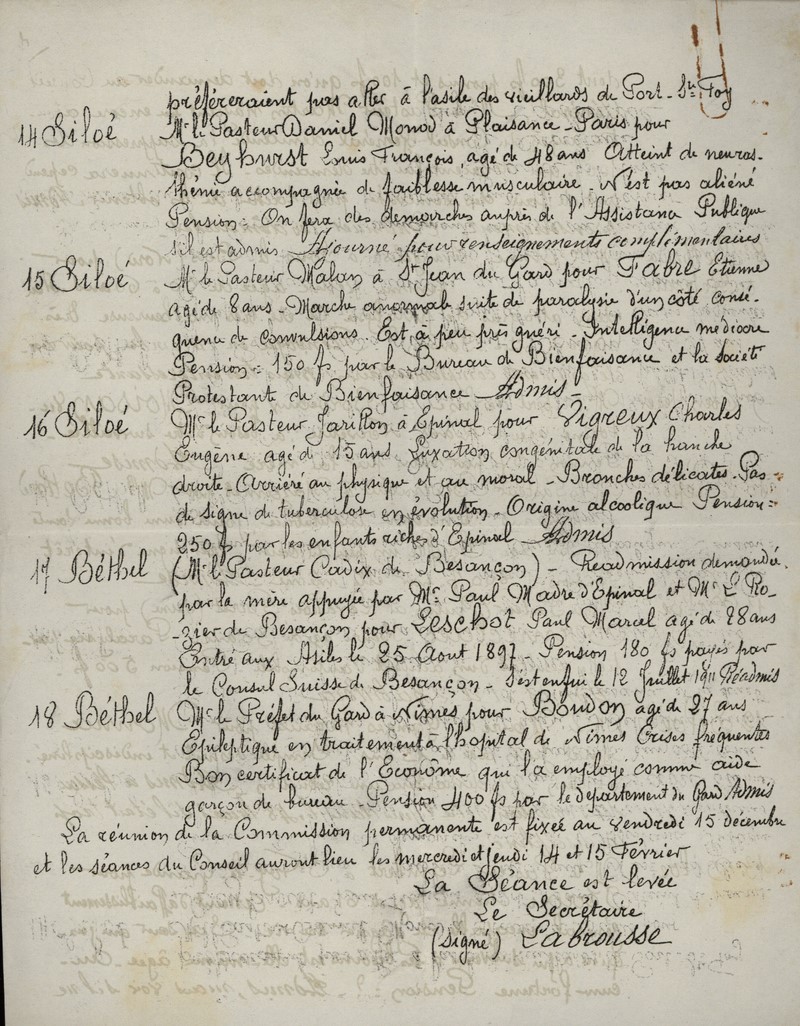 préféreraient pas aller à l'asile des vieillards de Port-Ste Foy
14 Siloé Mr le Pasteur Daniel Monod à Plaisance-Paris pour
Beyhurst Louis François, agé de 48 ans Atteint de neuras-
thénie accompagnée de faiblesse musculaire. N'est pas aliéné
Pension: On fera des démarches auprès de l'Assistance Publique
s'il est admis Ajourné pour renseignements complémentaires
15 Siloé Mr le Pasteur Malan à St Jean du Gard pour Fabre Etienne
agé de 8 ans. Marche anormale suite de paralysie d'un côté consé-
quence de convulsions. Est à peu près guéri. Intelligence médiocre
Pension: 150 fs par le Bureau de Bienfaisance et la Société
Protestante de Bienfaisance Admis-
16 Siloé Mr le Pasteur Jarillon à Epinal pour Vigreux Charles
Eugène agé de 15 ans Luxation congénitale de la hanche
droite. Arriéré au physique et au moral. Bronches délicates. Pas
de signe de tuberculose en évolution. Origine alcoolique Pension:
250 fs par les enfants riches d'Epinal Admis
17 Béthel (Mr le Pasteur Cadix de Besançon) - Réadmission demandée
par la mère appuyée par Mr Paul Madre d'Epinal et Mr L Ro-
-zier de Besançon pour Leschot Paul Marcel agé de 28 ans
Entré aux Asiles le 25 Aout 1897. Pension 180 fs payés par
le Consul Suisse de Besançon. S'est enfui le 12 Juillet 1911 Réadmis
18 Béthel Mr le Préfet du Gard à Nimes pour Boudon agé de 27 ans
Epileptique en traitement à l'hopital de Nimes Crises fréquentes
Bon certificat de l'Econôme qui l'a employé comme aide
garçon de bureau. Pension 400 fs par le département du Gard Admis
La réunion de la Commission permanente est fixée au Vendredi 15 décembre
et les séances du Conseil auront lieu les mercredi et jeudi 14 et 15 Février
La Séance est levée
Le Secrétaire
(signé) Labrousse